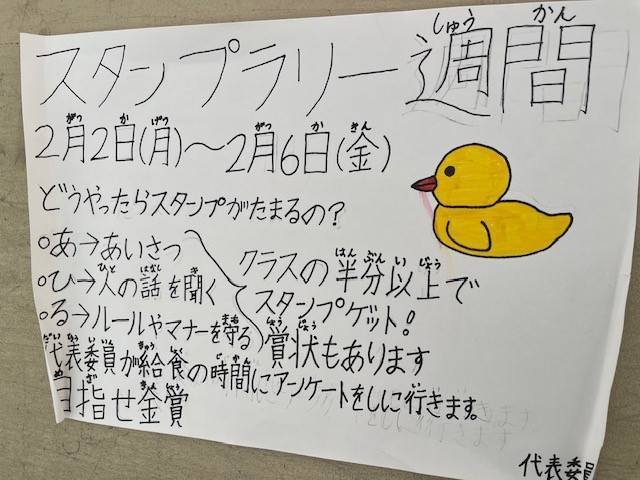 スタンプラリー週間
2月2日(月)～2月6日(金)
どうやったらスタンプがたまるの?
○あ→あいさつ
○ひ→人の話を聞く
○る→ルールやマナーを守る
クラスの半分以上で
スタンプゲット!
賞状もあります
代表委員が給食の時間にアンケートをしに行きます。
目指せ金賞
代表委員